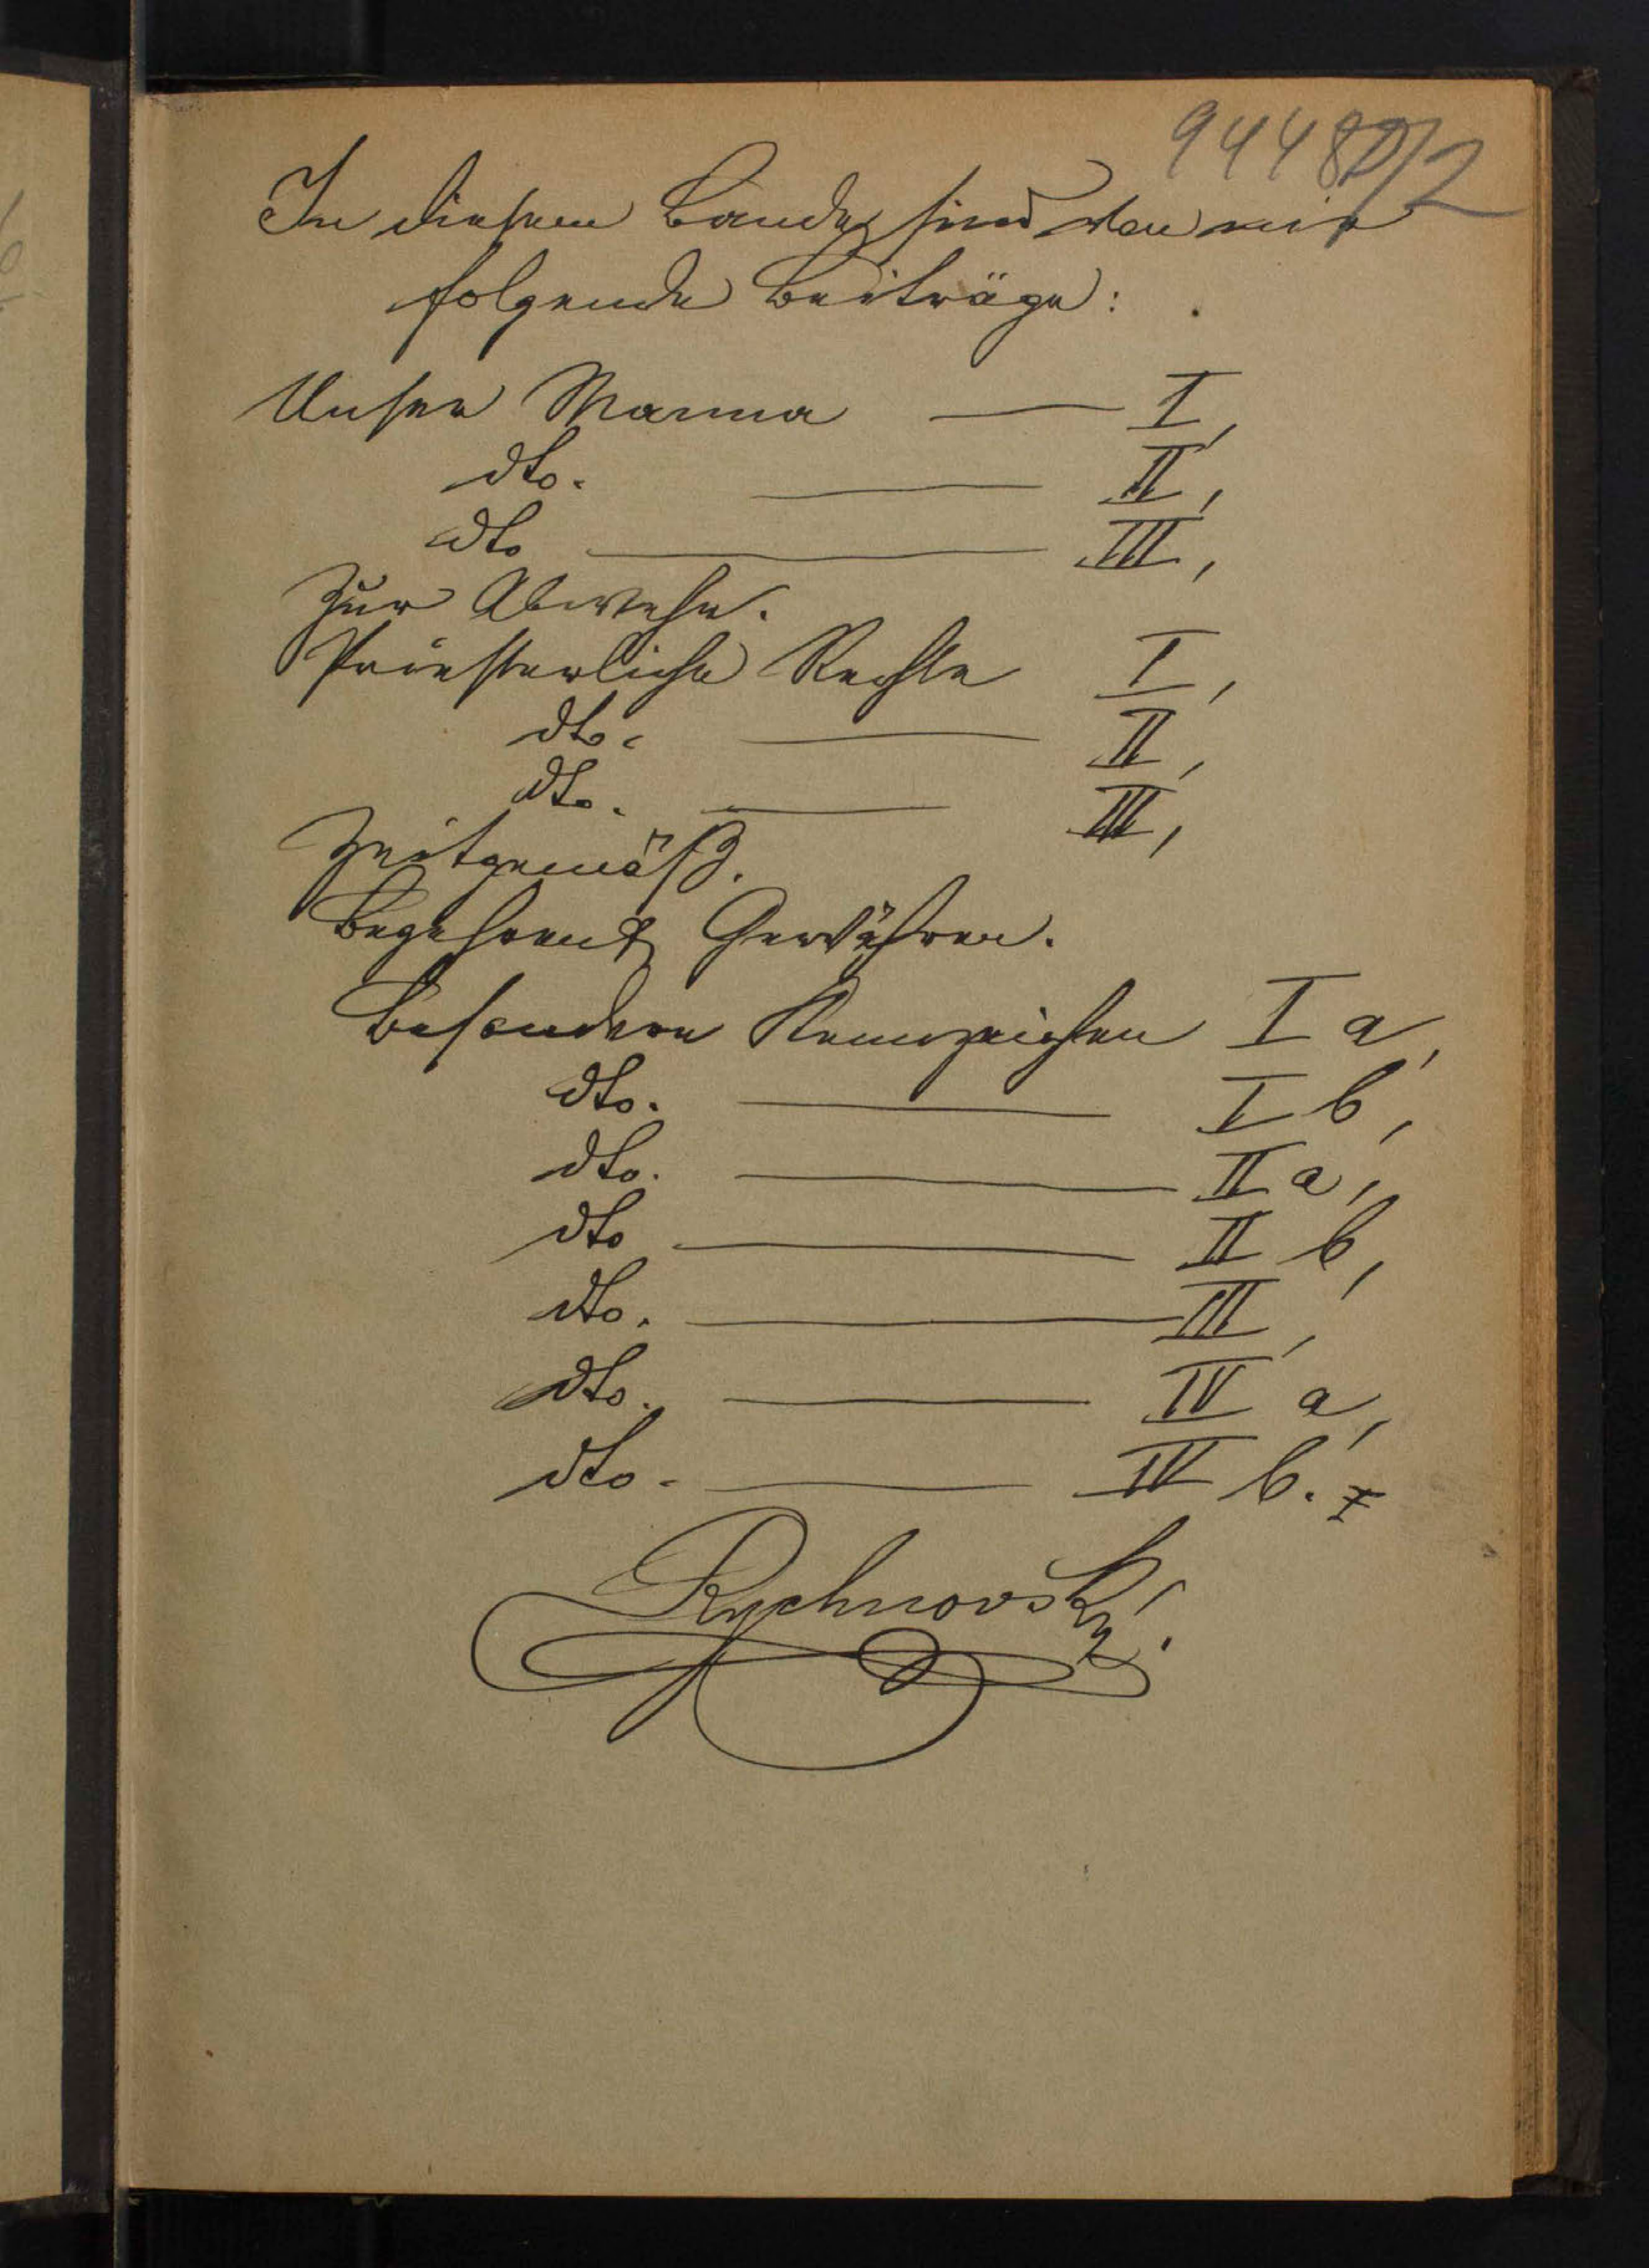 94480/2
In diesem Bande sind von mir
folgende Beiträge:
Unser Manna — I,
dto. — II,
dto — III,
Zur Abwehr.
Priesterliche Rechte I,
dto. — II,
dto. — III,
Zeitgemäß.
Begehren & Gewähren.
Besondere Kennzeichen I a,
dto. — I b,
dto. — II a,
dto — II b,
dto. — III,
dto. — IV a,
dto. — IV b.
Rychnovský.